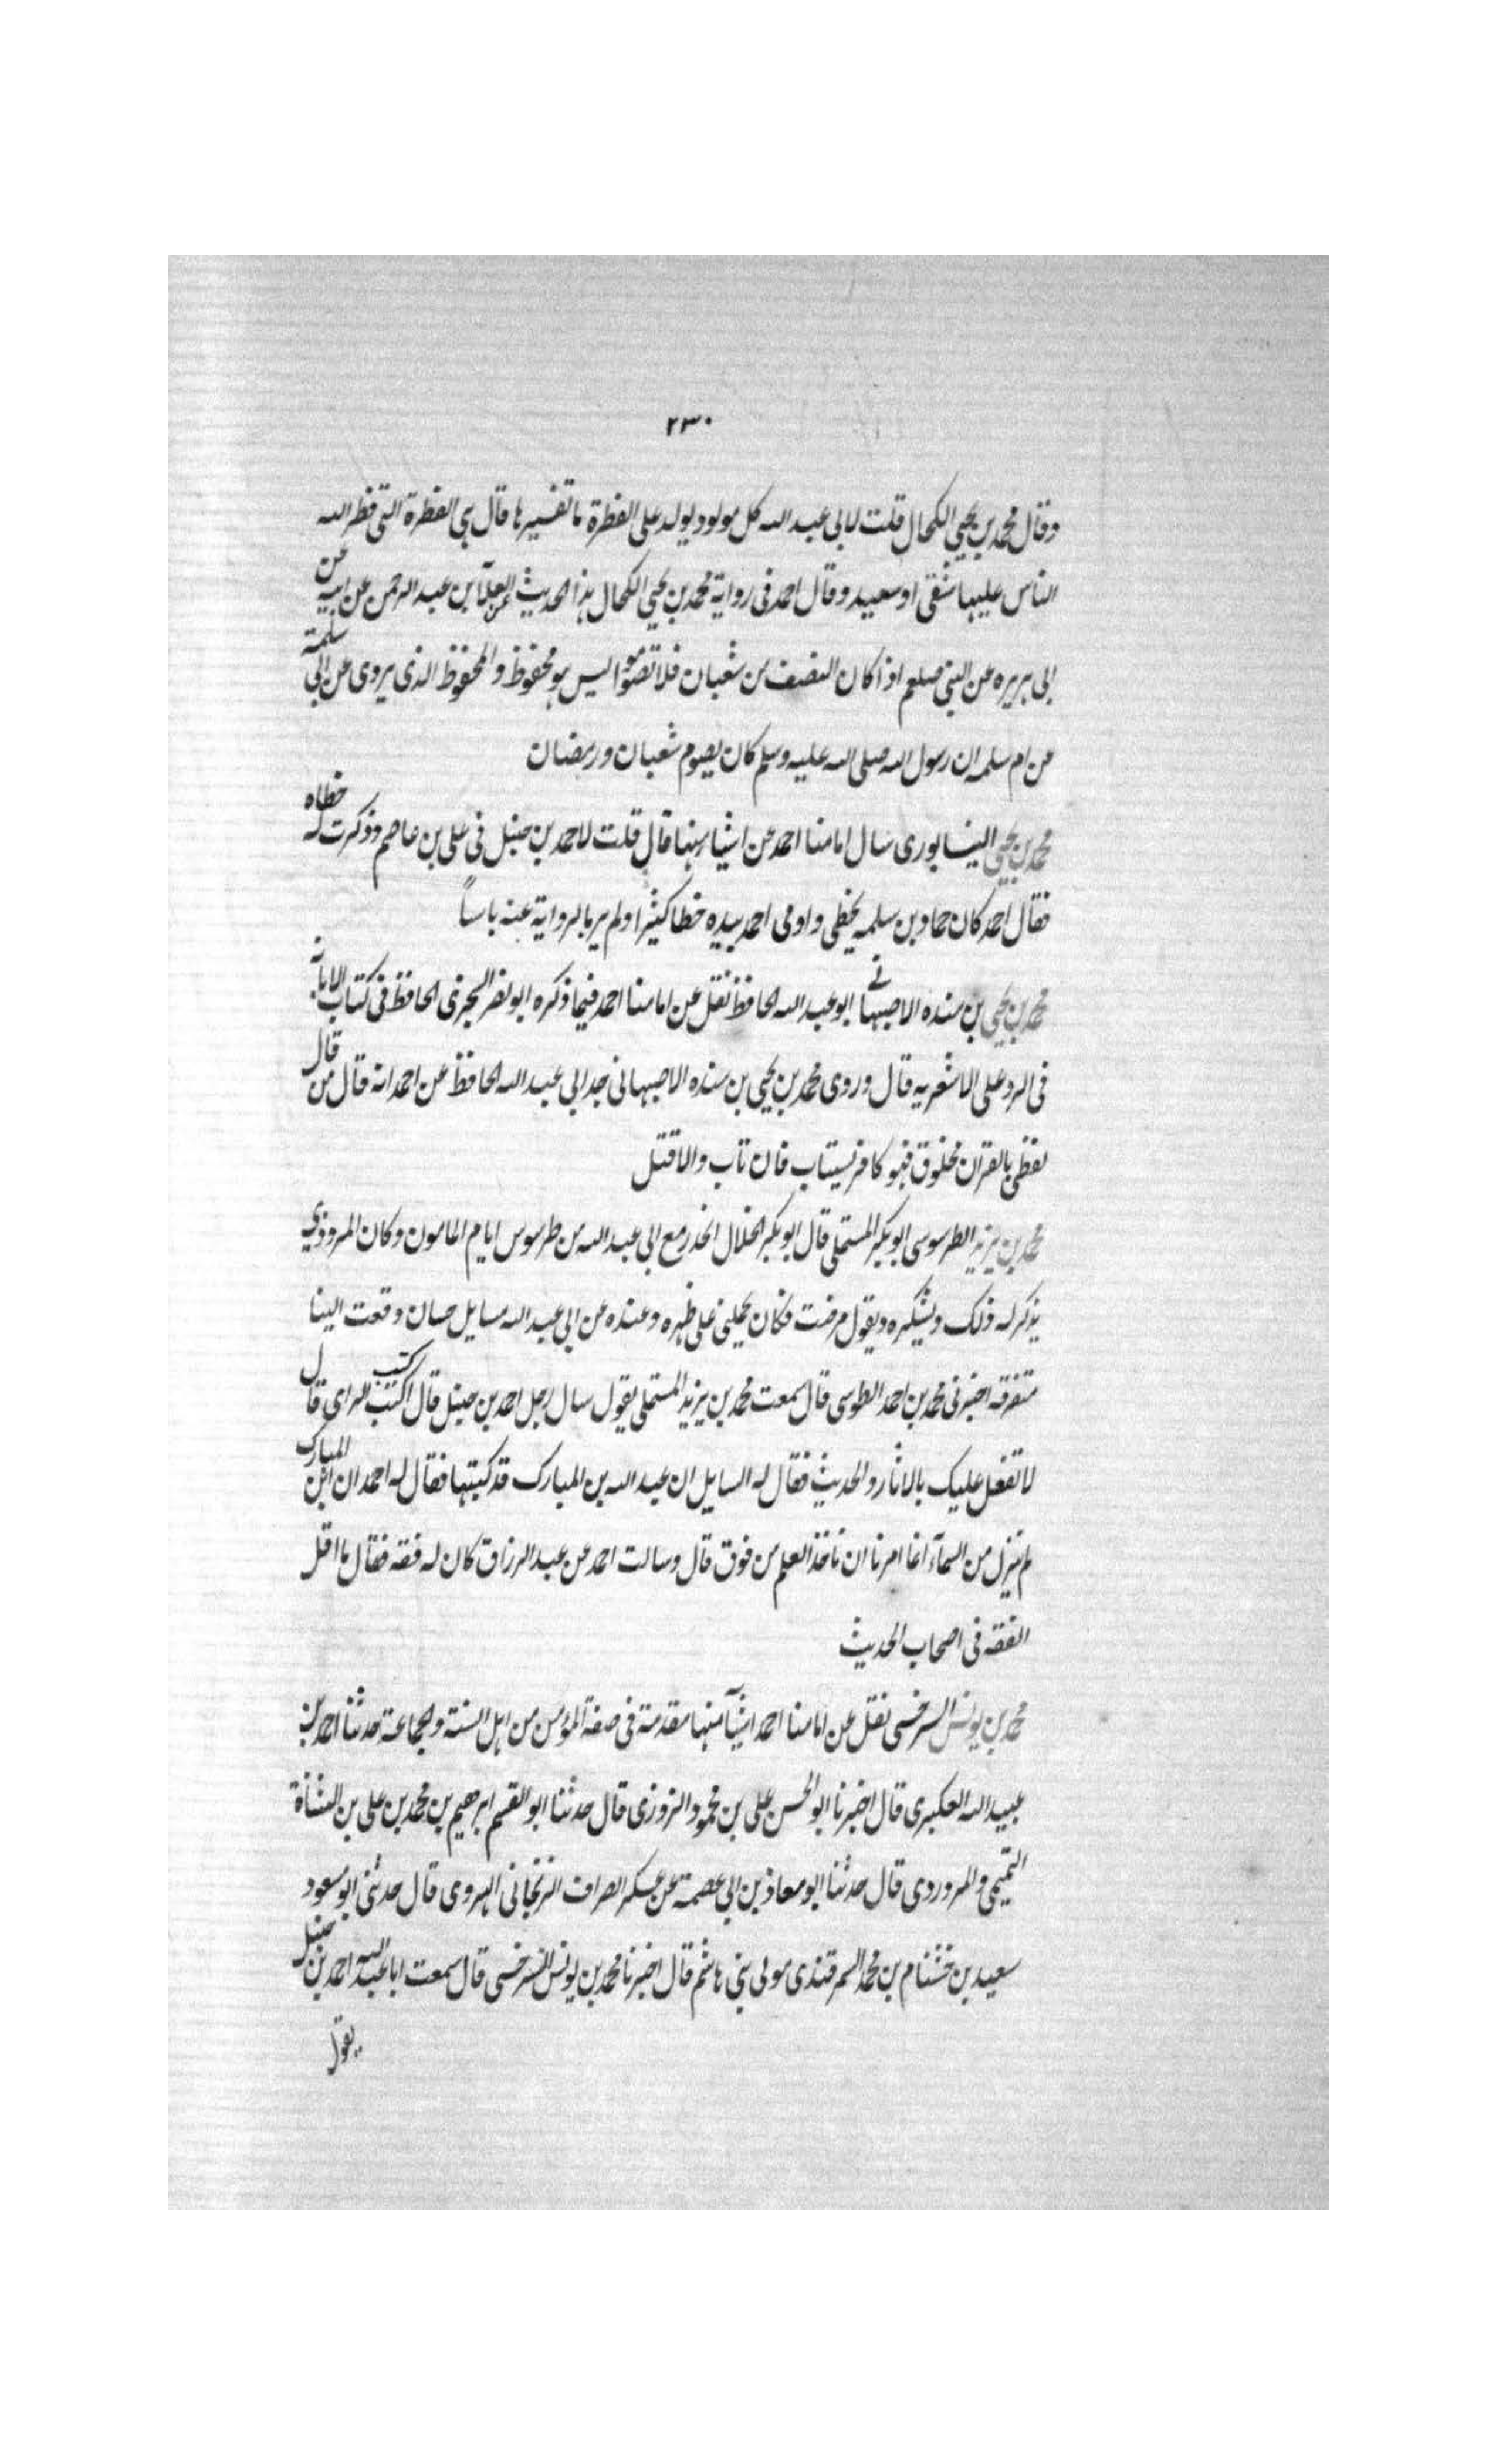 ٢٣٠
وقال محمد بن يحيى الكحال قلت لابى عبد الله كل مولود يولد على الفطرة ما تفسيرها قال هى الفطرة التى فطر الله
الناس عليها شقى او سعيد وقال احمد فى رواية محمد بن يحيى الكحال هذا الحديث عن العلآ بن عبد الرحمن عن ابيه عن
ابى هريره عن النبى صلعم اذا كان النصف من شعبان فلا تصوموا ليس هو محفوظ والمحفوظ الذى يروى عن ابى سلمة
عن ام سلمه ان رسول الله صلى الله عليه وسلم كان يصوم شعبان ورمضان
محمد بن يحيى النيسابورى سال امامنا احمد عن اشيا منها قال قلت لاحمد بن حنبل فى على بن عاصم وذكرت له خطاه
فقال احمد كان حماد بن سلمه يخطى واومى احمد بيده خطا كثيرا ولم ير بالرواية عنه باساً
محمد بن يحيى بن منده الاصبهانى ابو عبد الله الحافظ نقل عن امامنا احمد فيما ذكره ابو نصر السجزى الحافظ فى كتاب الابانة
فى الرد على الاشعريه قال وروى محمد بن يحيى بن منده الاصبهانى جد ابى عبد الله الحافظ عن احمد انه قال من قال
لفظى بالقران مخلوق فهو كافر يستتاب فان تاب والا قتل
محمد بن يزيد الطرسوسى ابو بكر المستملى قال ابو بكر الخلال انحدر مع ابى عبد الله من طرسوس ايام المامون وكان المروذي
يذكر له ذلك ويشكره ويقول مرضت فكان يحملنى على ظهره وعنده عن ابى عبد الله مسايل حسان وقعت الينا
متفرقه اخبرنى محمد بن احمد الطوسى قال سمعت محمد بن يزيد المستملى يقول سال رجل احمد بن حنبل قال اكتب كتب الراى قال
لا تفعل عليك بالاثار والحديث فقال له السايل ان عبد الله بن المبارك قد كتبها فقال له احمد ان ابن المبارك
لم ينزل من السمآء انما امرنا ان ناخذ العلم من فوق قال وسالت احمد عن عبد الرزاق كان له فقه فقال ما اقل
الفقه فى اصحاب الحديث
محمد بن يونس السرخسى نقل عن امامنا احمد اشيآ منها مقدمة فى صفة المؤمن من اهل السنة والجماعة حدثنا احمد بن
عبيد الله العكبرى قال اخبرنا ابو الحسن على بن محمود الزوزنى قال حدثنا ابو القسم ابرهيم بن محمد بن على بن الشاة
التميمى والمروردى قال حدثنا ابو معاذ بن ابى عصمة عن عسكر الصراف الزنجانى الهروى قال حدثنى ابو مسعود
سعيد بن خشنام بن محمد السمرقندى مولى بنى هاشم قال اخبرنا محمد بن يونس السرخسى قال سمعت ابا عبد الله احمد بن حنبل
يقول